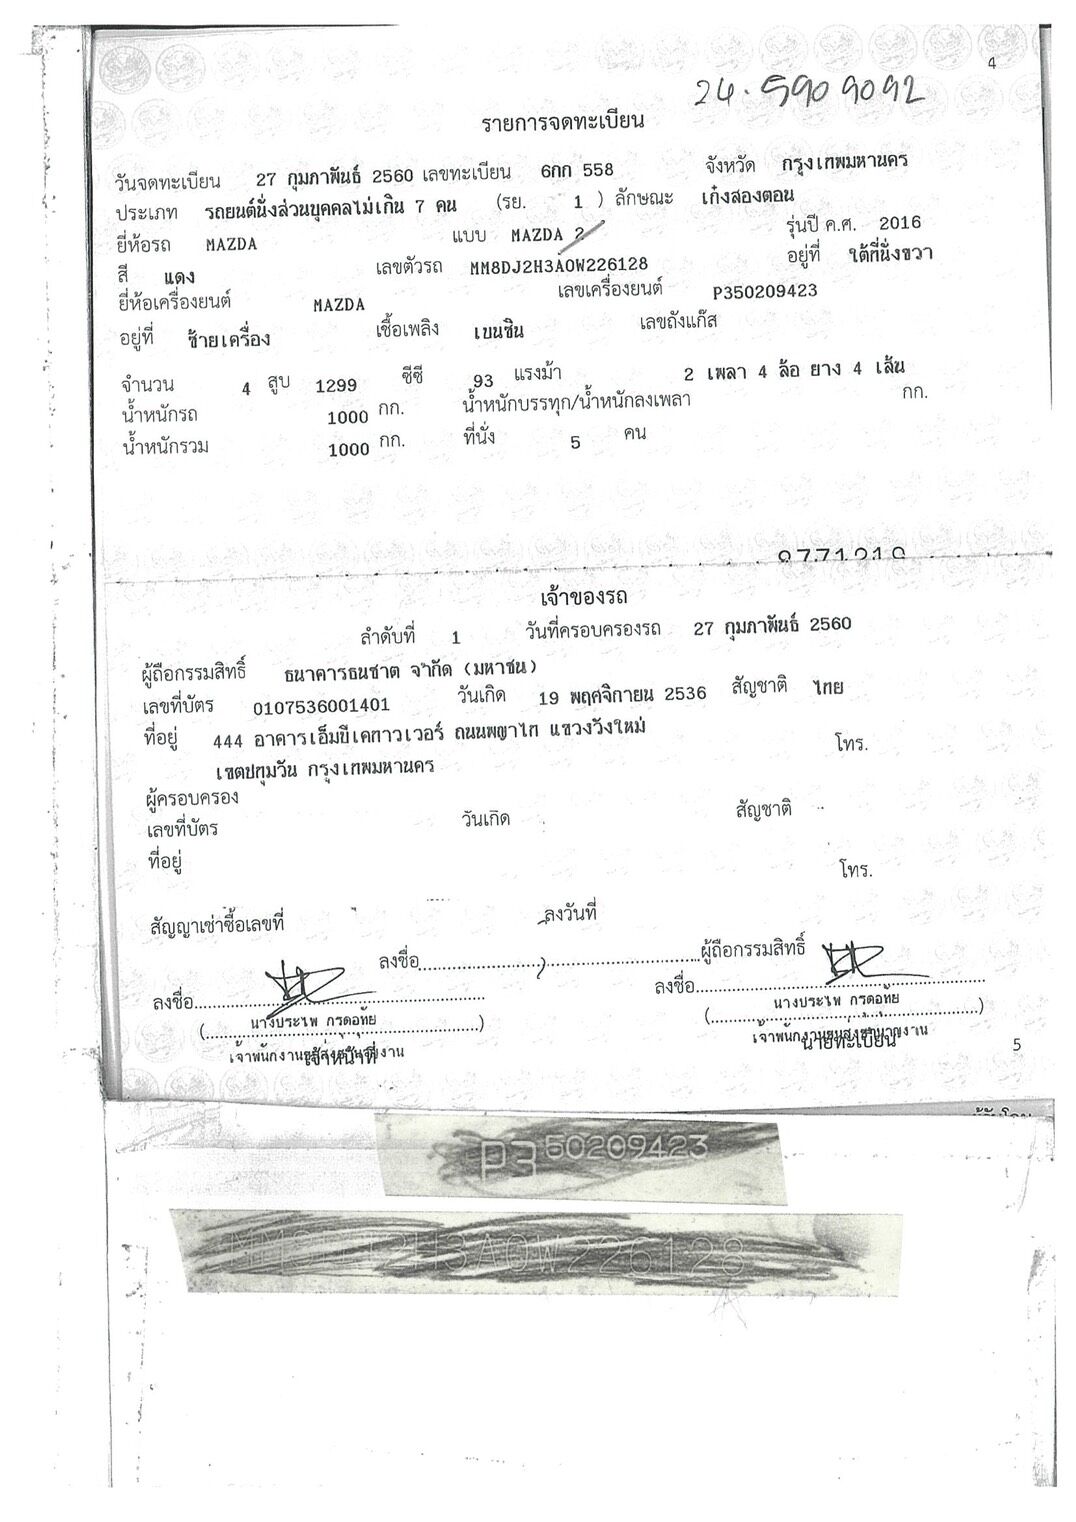 4
24-5909092
รายการจดทะเบียน
วันจดทะเบียน 27 กุมภาพันธ์ 2560 เลขทะเบียน 6กก 558 จังหวัด กรุงเทพมหานคร
ประเภท รถยนต์นั่งส่วนบุคคลไม่เกิน 7 คน (รย. 1 ) ลักษณะ เก๋งสองตอน
ยี่ห้อรถ MAZDA แบบ MAZDA 2 รุ่นปี ค.ศ. 2016
สี แดง เลขตัวรถ MM8DJ2H3A0W226128 อยู่ที่ ใต้ที่นั่งขวา
ยี่ห้อเครื่องยนต์ MAZDA เลขเครื่องยนต์ P350209423
อยู่ที่ ซ้ายเครื่อง เชื้อเพลิง เบนซิน เลขถังแก๊ส
จำนวน 4 สูบ 1299 ซีซี 93 แรงม้า 2 เพลา 4 ล้อ ยาง 4 เส้น
น้ำหนักรถ 1000 กก. น้ำหนักบรรทุก/น้ำหนักลงเพลา กก.
น้ำหนักรวม 1000 กก. ที่นั่ง 5 คน
เจ้าของรถ
ลำดับที่ 1 วันที่ครอบครองรถ 27 กุมภาพันธ์ 2560
ผู้ถือกรรมสิทธิ์ ธนาคารธนชาต จำกัด (มหาชน)
เลขที่บัตร 0107536001401 วันเกิด 19 พฤศจิกายน 2536 สัญชาติ ไทย
ที่อยู่ 444 อาคารเอ็มบีเคทาวเวอร์ ถนนพญาไท แขวงวังใหม่
เขตปทุมวัน กรุงเทพมหานคร โทร.
ผู้ครอบครอง
เลขที่บัตร วันเกิด สัญชาติ
ที่อยู่ โทร.
สัญญาเช่าซื้อเลขที่ ลงวันที่
ลงชื่อ ผู้ถือกรรมสิทธิ์
ลงชื่อ ลงชื่อ
(นางประไพ กรดอทัย) (นางประไพ กรดอทัย)
เจ้าหน้าที่ นายทะเบียน
5
P350209423
2H3A0W226128